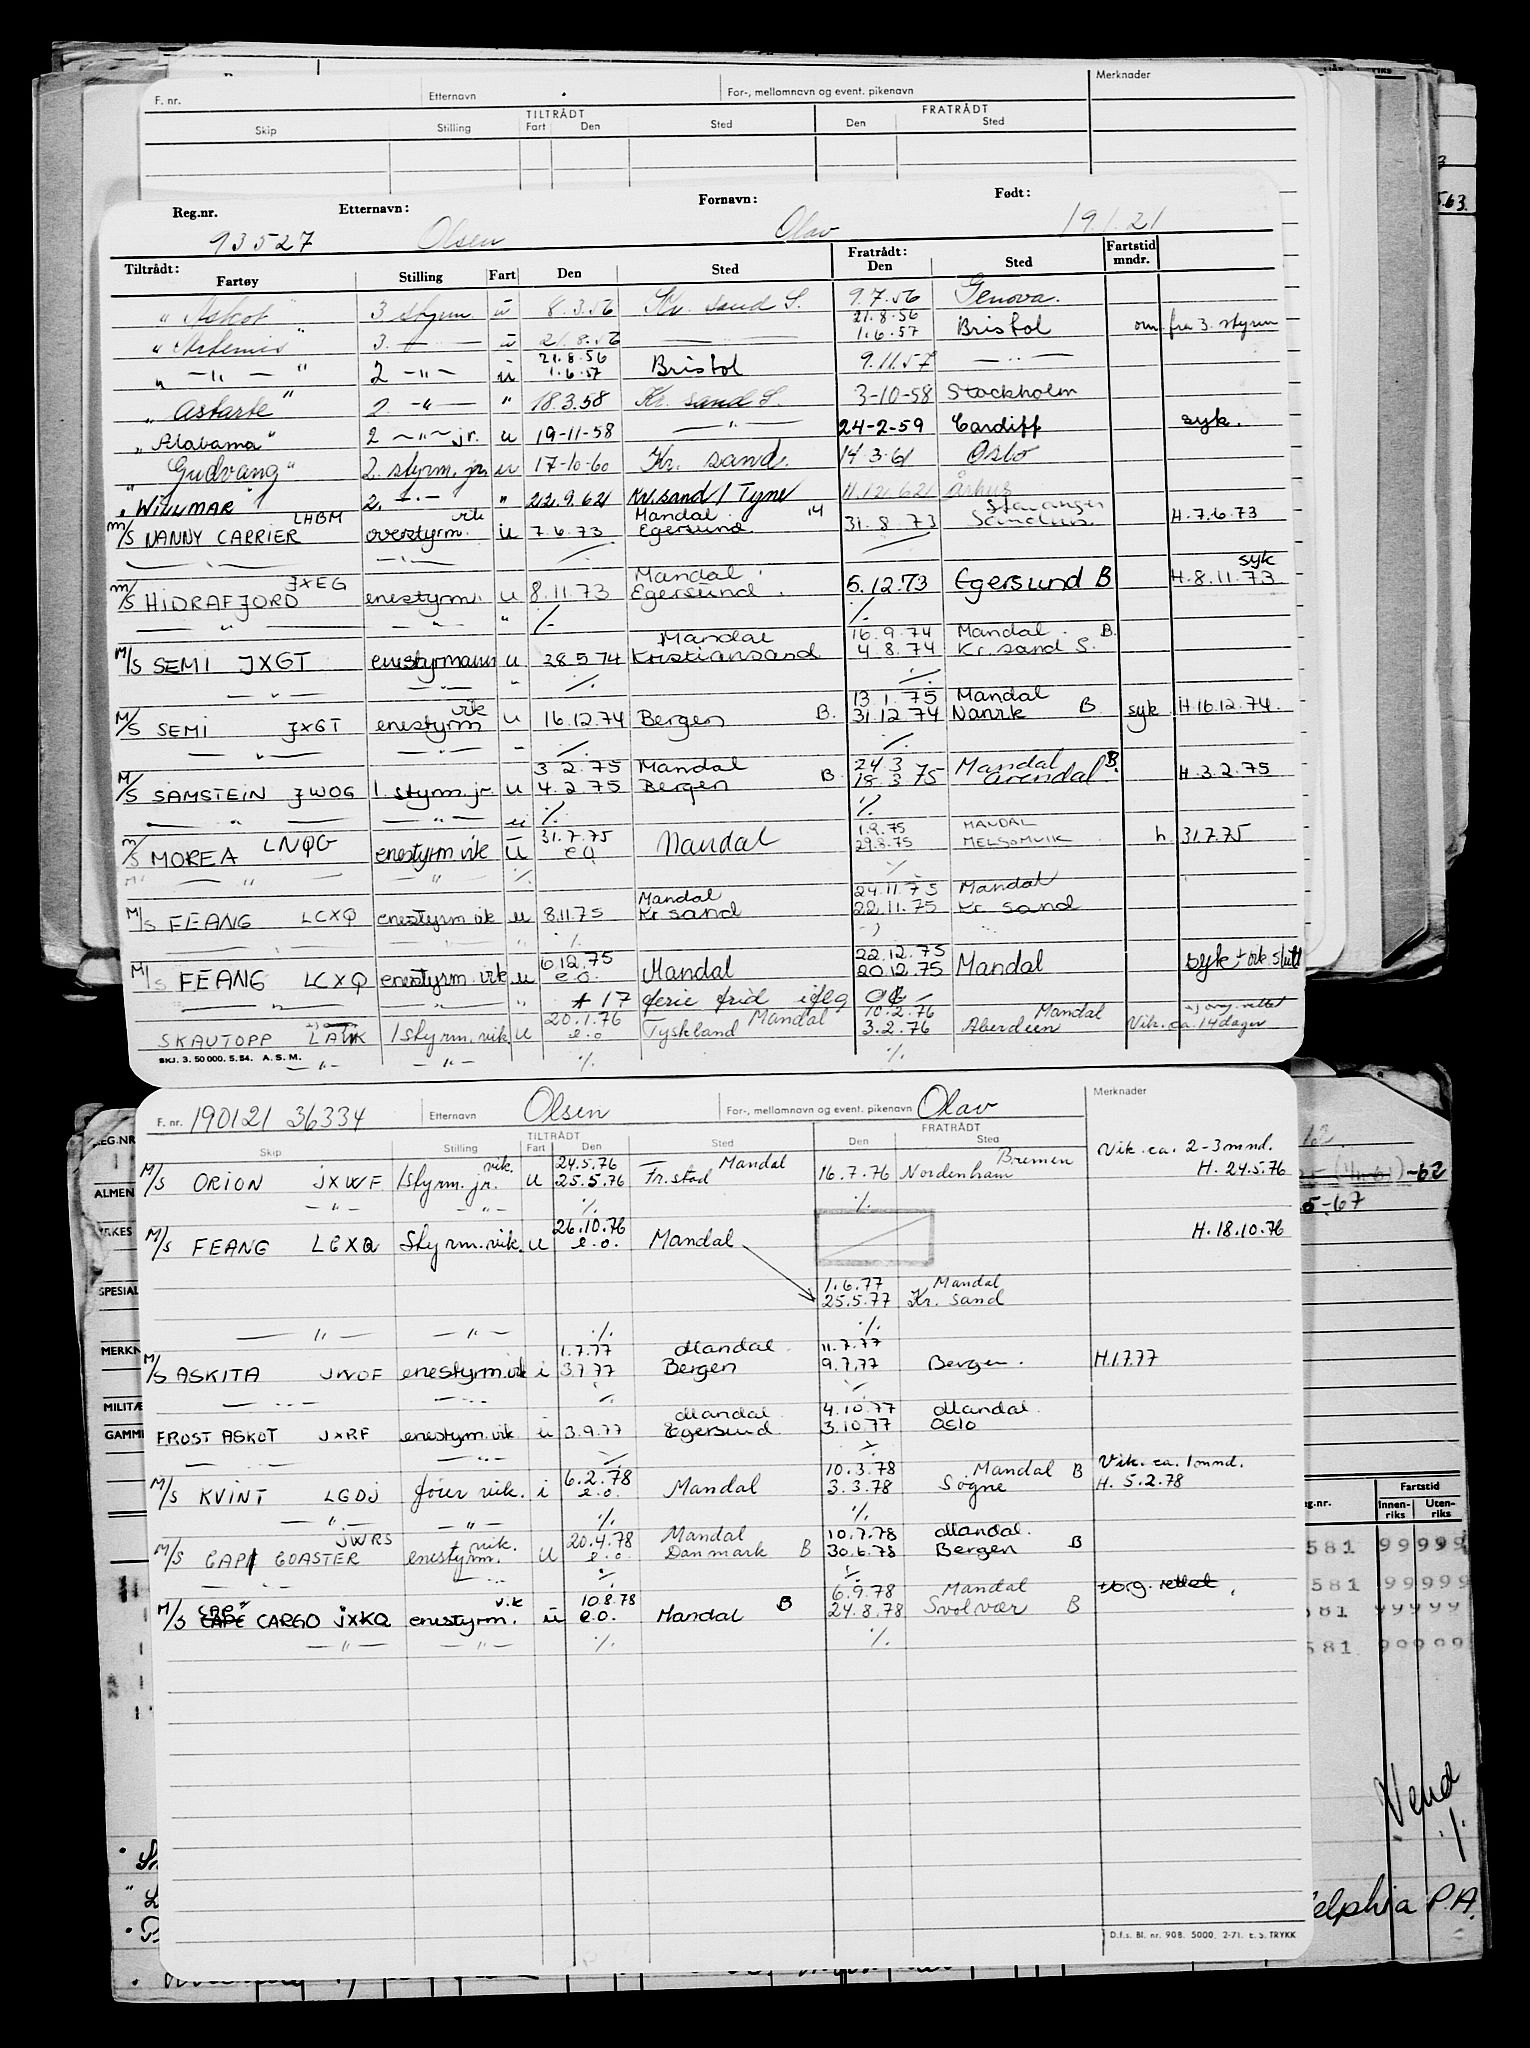 F. nr. Etternavn For-, mellomnavn og event. pikenavn Merknader
TILTRÅDT FRATRÅDT
Skip Stilling Fart Den Sted Den Sted
Reg.nr. Etternavn: Fornavn: Født:
93527 Olsen Olav 19.1.21
Tiltrådt: Fratrådt: Fartstid
Fartøy Stilling Fart Den Sted Den Sted mndr.
" Askot " 3 styrm u 8.3.56 Kr. sand S. 9.7.56 Genova.
21.8.56
" Artemis " 3. — u 21.8.56 — " — 1.6.57 Bristol om. fra 3. styrm
21.8.56
" — " — " 2 — " — u 1.6.57 Bristol 9.11.57 — " —
" Astarte " 2 — " — " 18.3.58 Kr. sand S. 3-10-58 Stockholm
" Alabama " 2 — " — jr. u 19-11-58 — " — 24-2-59 Cardiff syk.
" Gudvang " 2. styrm. jr. u 17-10-60 Kr. sand. 14.3.61 Oslo
" WILLMAR " 2. — " — " 22.9.621 Kr.sand / Tyne 11.12.621 Århus
LHBM vik Mandal 14 Stavanger
M/S NANNY CARRIER overstyrm. u 7.6.73 Egersund 31.8.73 Sandnes. H.7.6.73
— " — ./. ./.
JXEG Mandal syk
M/S HIDRAFJORD enestyrm. u 8.11.73 Egersund. 5.12.73 Egersund B H.8.11.73
— " — " " ./. ./.
Mandal 16.9.74 Mandal. B.
M/S SEMI JXGT enestyrmann u 28.5.74 Kristiansand 4.8.74 Kr.sand S.
— " — — " — " ./. ./.
vik 13.1.75 Mandal
M/S SEMI JXGT enestyrm u 16.12.74 Bergen B. 31.12.74 Narvik B. syk H.16.12.74.
— " — — " — " ./. ./.
3.2.75 Mandal 24.3 Mandal B.
M/S SAMSTEIN JWOG 1. styrm. jr. u 4.2.75 Bergen B. 18.3.75 Arendal H.3.2.75
— " — — " — u ./. ./.
LNQG 31.7.75 1.9.75 MANDAL
M/S MOREA enestyrm vik u e.o. Mandal 29.8.75 MELSOMVIK h. 31.7.75
" " ./. ./.
Mandal 24.11.75 Mandal
M/S FEANG LCXQ enestyrm vik u 8.11.75 Kr sand 22.11.75 Kr. sand
— " — " ./.
6.12.75 22.12.75
M/S FEANG LCXQ enestyrm. vik u e.o. Mandal 20.12.75 Mandal syk + vik. slutt
— " — — " — " + 17 ferie frid iflg
20.1.76 Mandal 10.2.76 Mandal
SKAUTOPP 1 styrm. vik u e.o. Tyskland 3.2.76 Aberdeen Vik. ca. 14 dager
SKJ. 3. 50 000. 5. 54. A. S. M. — " — — " — ./. ./.
F. nr. 190121 36334 Etternavn Olsen For-, mellomnavn og event. pikenavn Olav Merknader
TILTRÅDT FRATRÅDT
Skip Stilling Fart Den Sted Den Sted
Vik. ca. 2-3 mnd.
vik. 24.5.76 Mandal Bremen H. 24.5.76
M/S ORION JXWF 1styrm. jr. u 25.5.76 Fr.stad 16.7.76 Nordenham
— " — — " — ./. ./.
26.10.76 H.18.10.76
M/S FEANG LCXQ Styrm. vik. u e.o. Mandal
1.6.77 Mandal
25.5.77 Kr. sand
— " — — " — ./. ./.
1.7.77 Mandal. 11.7.77
M/S ASKITA JWOF enestyrm. vik i 3.7.77 Bergen 9.7.77 Bergen. H.1.7.77
— " — ./. ./.
Mandal 4.10.77 Mandal.
FROST ASKOT JXRF enestyrm. vik. u 3.9.77 Egersund. 3.10.77 Oslo
— " — — " — ./. ./.
6.2.78 10.3.78 Mandal B Vik. ca. 1 mnd.
M/S KVINT LGDJ fører vik. i e.o. Mandal 3.3.78 Søgne H. 5.2.78
— " — — " — ./. ./.
JWRS vik. 20.4.78 Mandal 10.7.78 Mandal.
M/S CAPI COASTER enestyrm. u e.o. Danmark B 30.6.78 Bergen B
— " — — " — ./. ./.
CAP" vik 10.8.78 B 6.9.78 Mandal
M/S CAPE CARGO JXKQ enestyrm. u e.o. Mandal 24.8.78 Svolvær B
— " — — " — ./. ./.
D.f.s. Bl. nr. 908. 5000. 2-71. E.S. TRYKK
REG.NR
ALMEN
YRKES
SPESIAL
MERKN
MILITÆ
GAMMI
-62
5-67
Fartstid
Innen-riks Uten-riks
581 99999
581 99999
81 99999
581 99999
Vend
./.
elphia P.A.